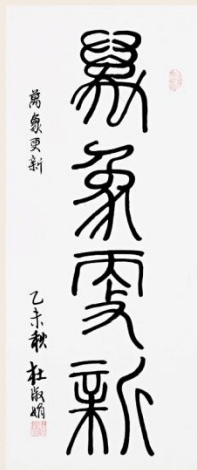 萬象更新
萬象更新
乙未秋 杜淑娟